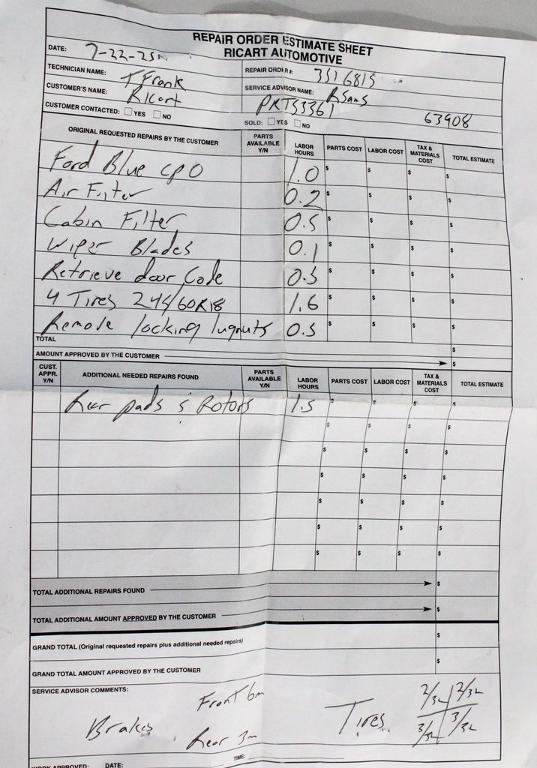 REPAIR ORDER ESTIMATE SHEET
RICART AUTOMOTIVE
DATE: 7-22-25
TECHNICIAN NAME: T Frank
REPAIR ORDER #: 3516815
CUSTOMER'S NAME: Ricart
SERVICE ADVISOR NAME: RSams
PRTS3361
63908
CUSTOMER CONTACTED: ☐ YES ☐ NO
SOLD: ☐ YES ☐ NO
ORIGINAL REQUESTED REPAIRS BY THE CUSTOMER PARTS AVAILABLE Y/N LABOR HOURS PARTS COST LABOR COST TAX & MATERIALS COST TOTAL ESTIMATE
Ford Blue CPO 1.0 $ $ $ $
Air Filter 0.2 $ $ $ $
Cabin Filter 0.5 $ $ $ $
Wiper Blades 0.1 $ $ $ $
Retrieve door Code 0.5 $ $ $ $
4 Tires 245/60R18 1.6 $ $ $ $
Remove locking lugnuts 0.5 $ $ $ $
TOTAL $
AMOUNT APPROVED BY THE CUSTOMER $
CUST. APPR. Y/N ADDITIONAL NEEDED REPAIRS FOUND PARTS AVAILABLE Y/N LABOR HOURS PARTS COST LABOR COST TAX & MATERIALS COST TOTAL ESTIMATE
Rear pads & Rotors 1.5 $ $ $ $
$ $ $ $
$ $ $ $
$ $ $ $
$ $ $ $
$ $ $ $
$ $ $ $
TOTAL ADDITIONAL REPAIRS FOUND $
TOTAL ADDITIONAL AMOUNT APPROVED BY THE CUSTOMER $
GRAND TOTAL (Original requested repairs plus additional needed repairs) $
GRAND TOTAL AMOUNT APPROVED BY THE CUSTOMER $
SERVICE ADVISOR COMMENTS:
Front 6m
Brakes
Rear 3m
Tires
2/32 2/32
3/32 3/32
WORK APPROVED: DATE: TIME: